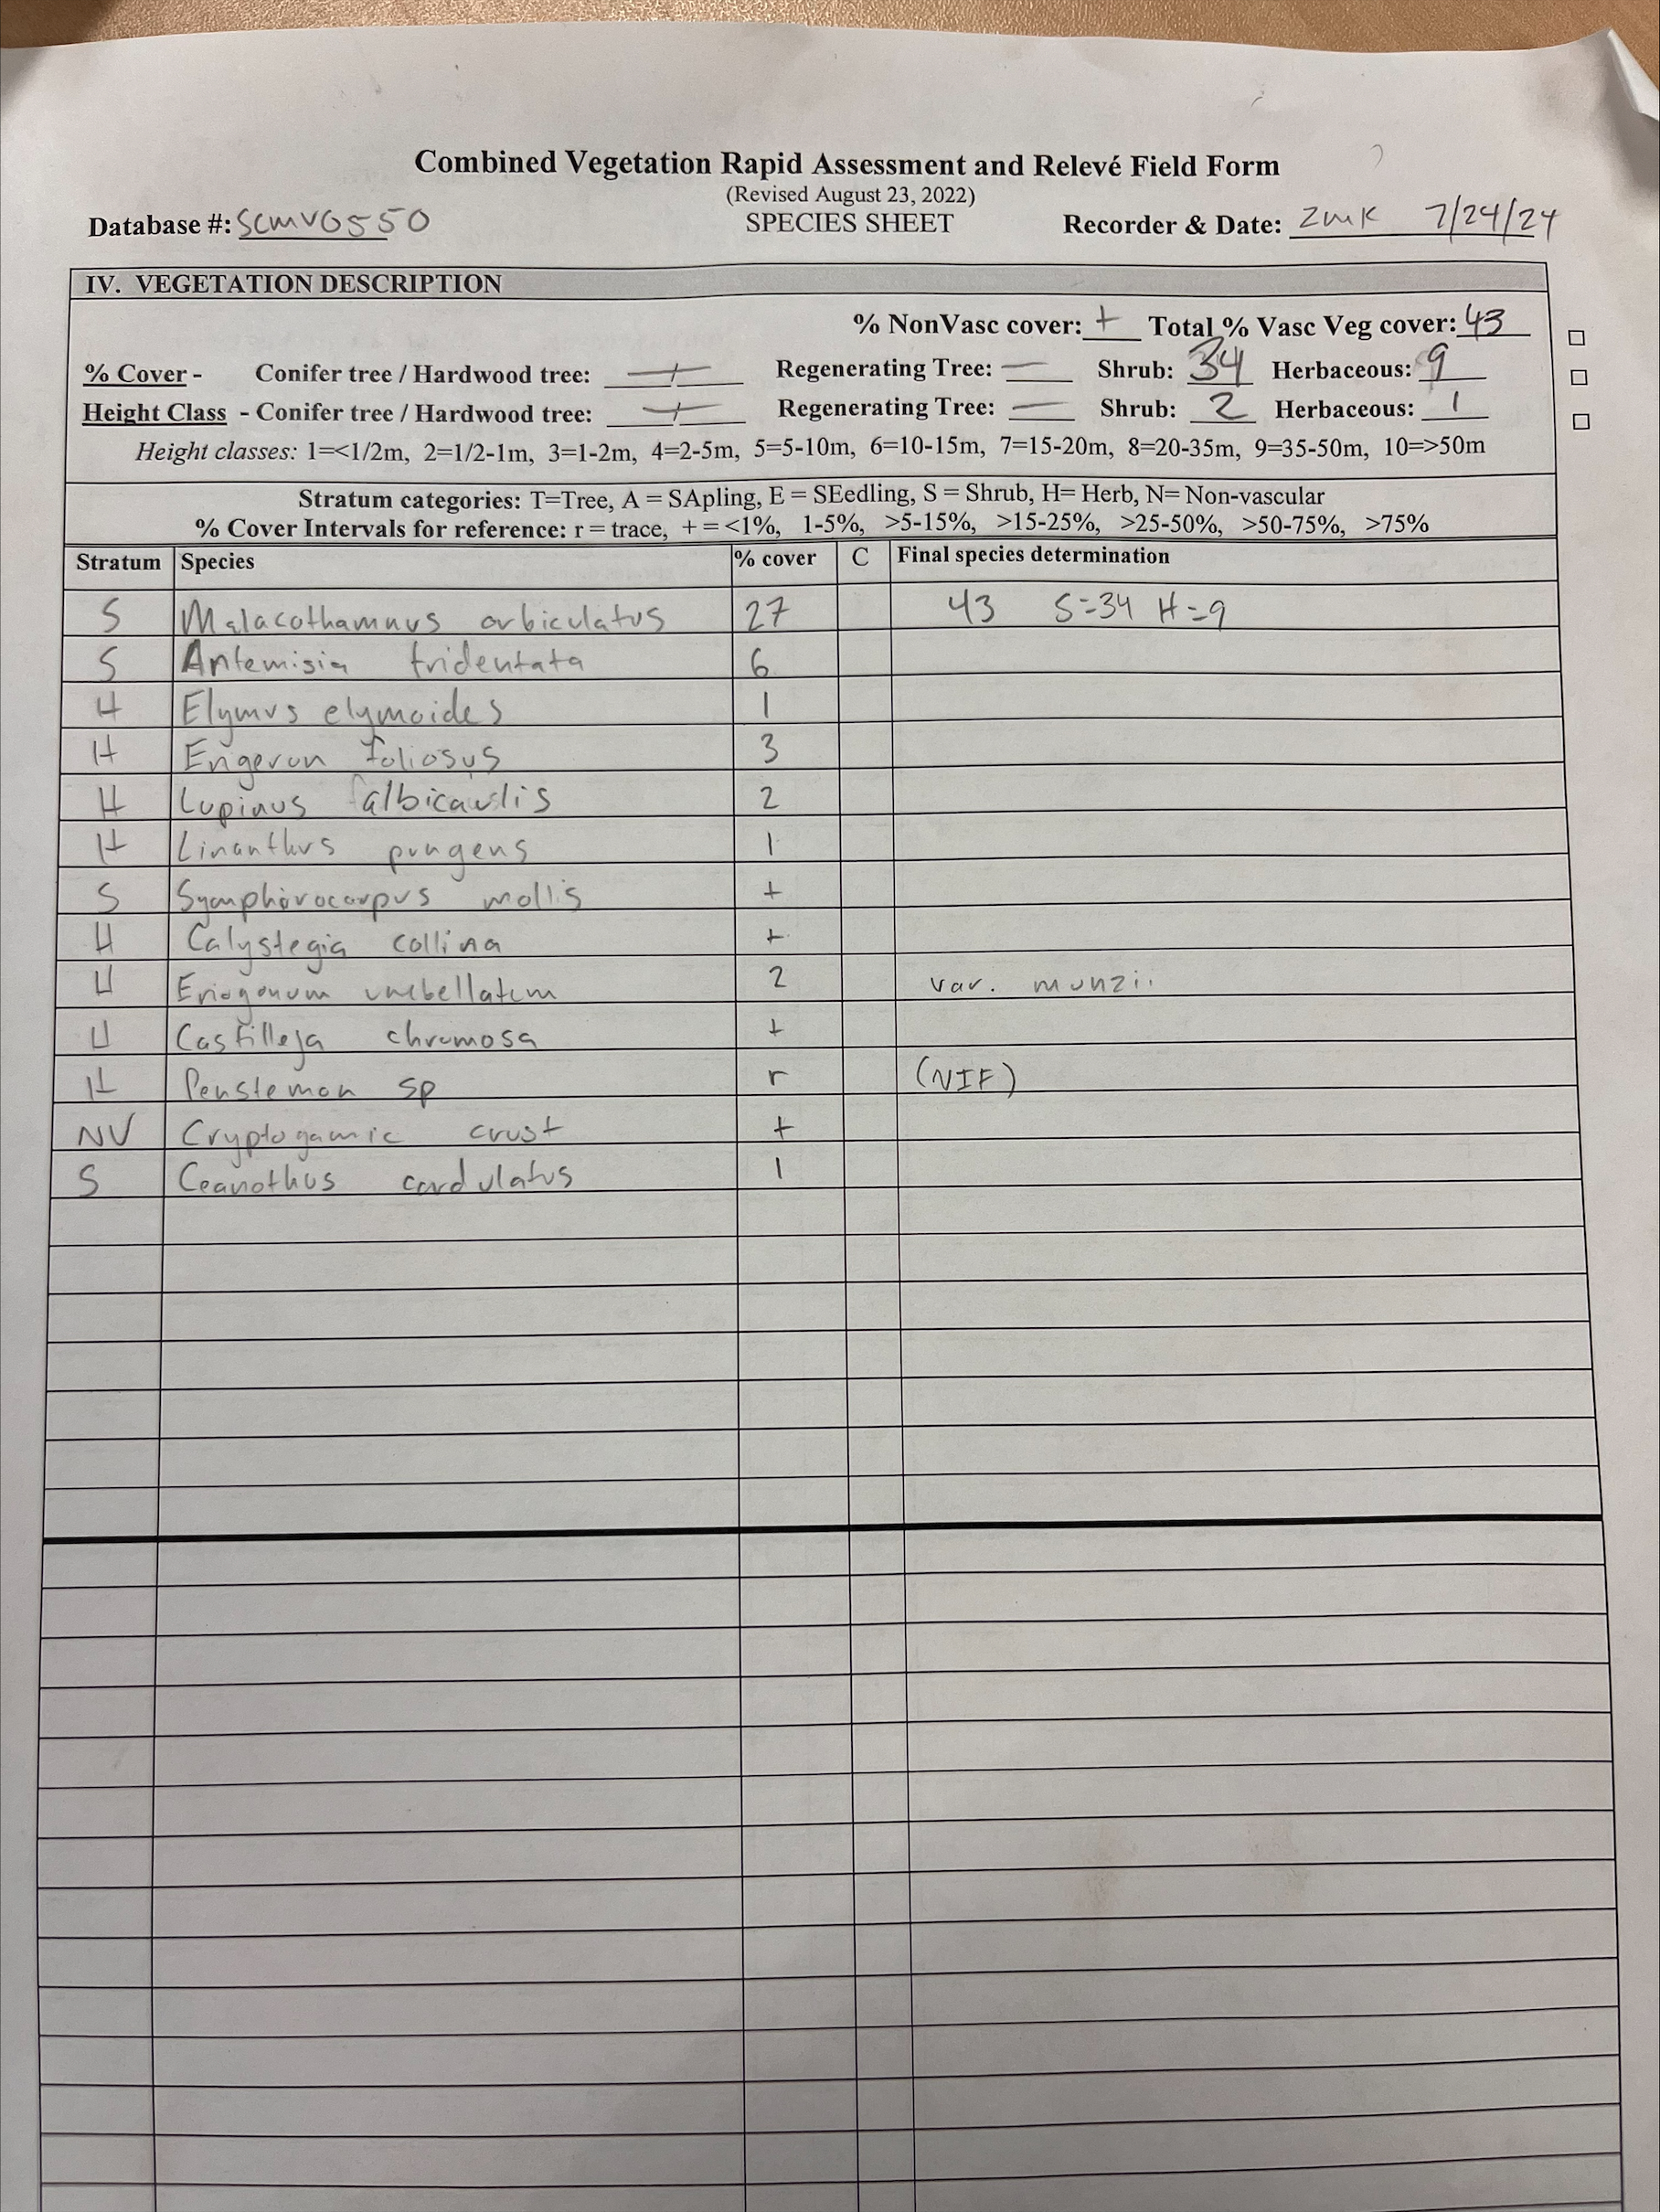 Combined Vegetation Rapid Assessment and Relevé Field Form
(Revised August 23, 2022)
Database #: SCMV0550 SPECIES SHEET Recorder & Date: ZMK 7/24/24
IV. VEGETATION DESCRIPTION
% NonVasc cover: + Total % Vasc Veg cover: 43
% Cover - Conifer tree / Hardwood tree: —/— Regenerating Tree: — Shrub: 34 Herbaceous: 9
Height Class - Conifer tree / Hardwood tree: —/— Regenerating Tree: — Shrub: 2 Herbaceous: 1
Height classes: 1=<1/2m, 2=1/2-1m, 3=1-2m, 4=2-5m, 5=5-10m, 6=10-15m, 7=15-20m, 8=20-35m, 9=35-50m, 10=>50m
Stratum categories: T=Tree, A = SApling, E = SEedling, S = Shrub, H= Herb, N= Non-vascular
% Cover Intervals for reference: r = trace, + = <1%, 1-5%, >5-15%, >15-25%, >25-50%, >50-75%, >75%
Stratum Species % cover C Final species determination
S Malacothamnus orbiculatus 27 43 S=34 H=9
S Artemisia tridentata 6
H Elymus elymoides 1
H Erigeron foliosus 3
H Lupinus albicaulis 2
H Linanthus pungens 1
S Symphorocarpus mollis +
H Calystegia collina +
H Eriogonum umbellatum 2 var. munzii
H Castilleja chromosa +
H Penstemon sp r (NIF)
NV Cryptogamic crust +
S Ceanothus cordulatus 1